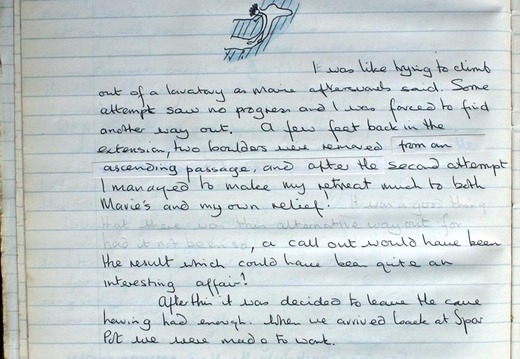 It was like trying to climb
out of a lavatory as Marie afterwards said. Some
attempt saw no progress and I was forced to find
another way out. A few feet back in the
extension, two boulders were removed from an
ascending passage, and after the second attempt
I managed to make my retreat much to both
Marie's and my own relief! It was a good thing
that there was this alternative way out for
had it not been so, a call out would have been
the result which could have been quite an
interesting affair!
After this it was decided to leave the cave
having had enough. When we arrived back at Spar
Pot we were made to wait.